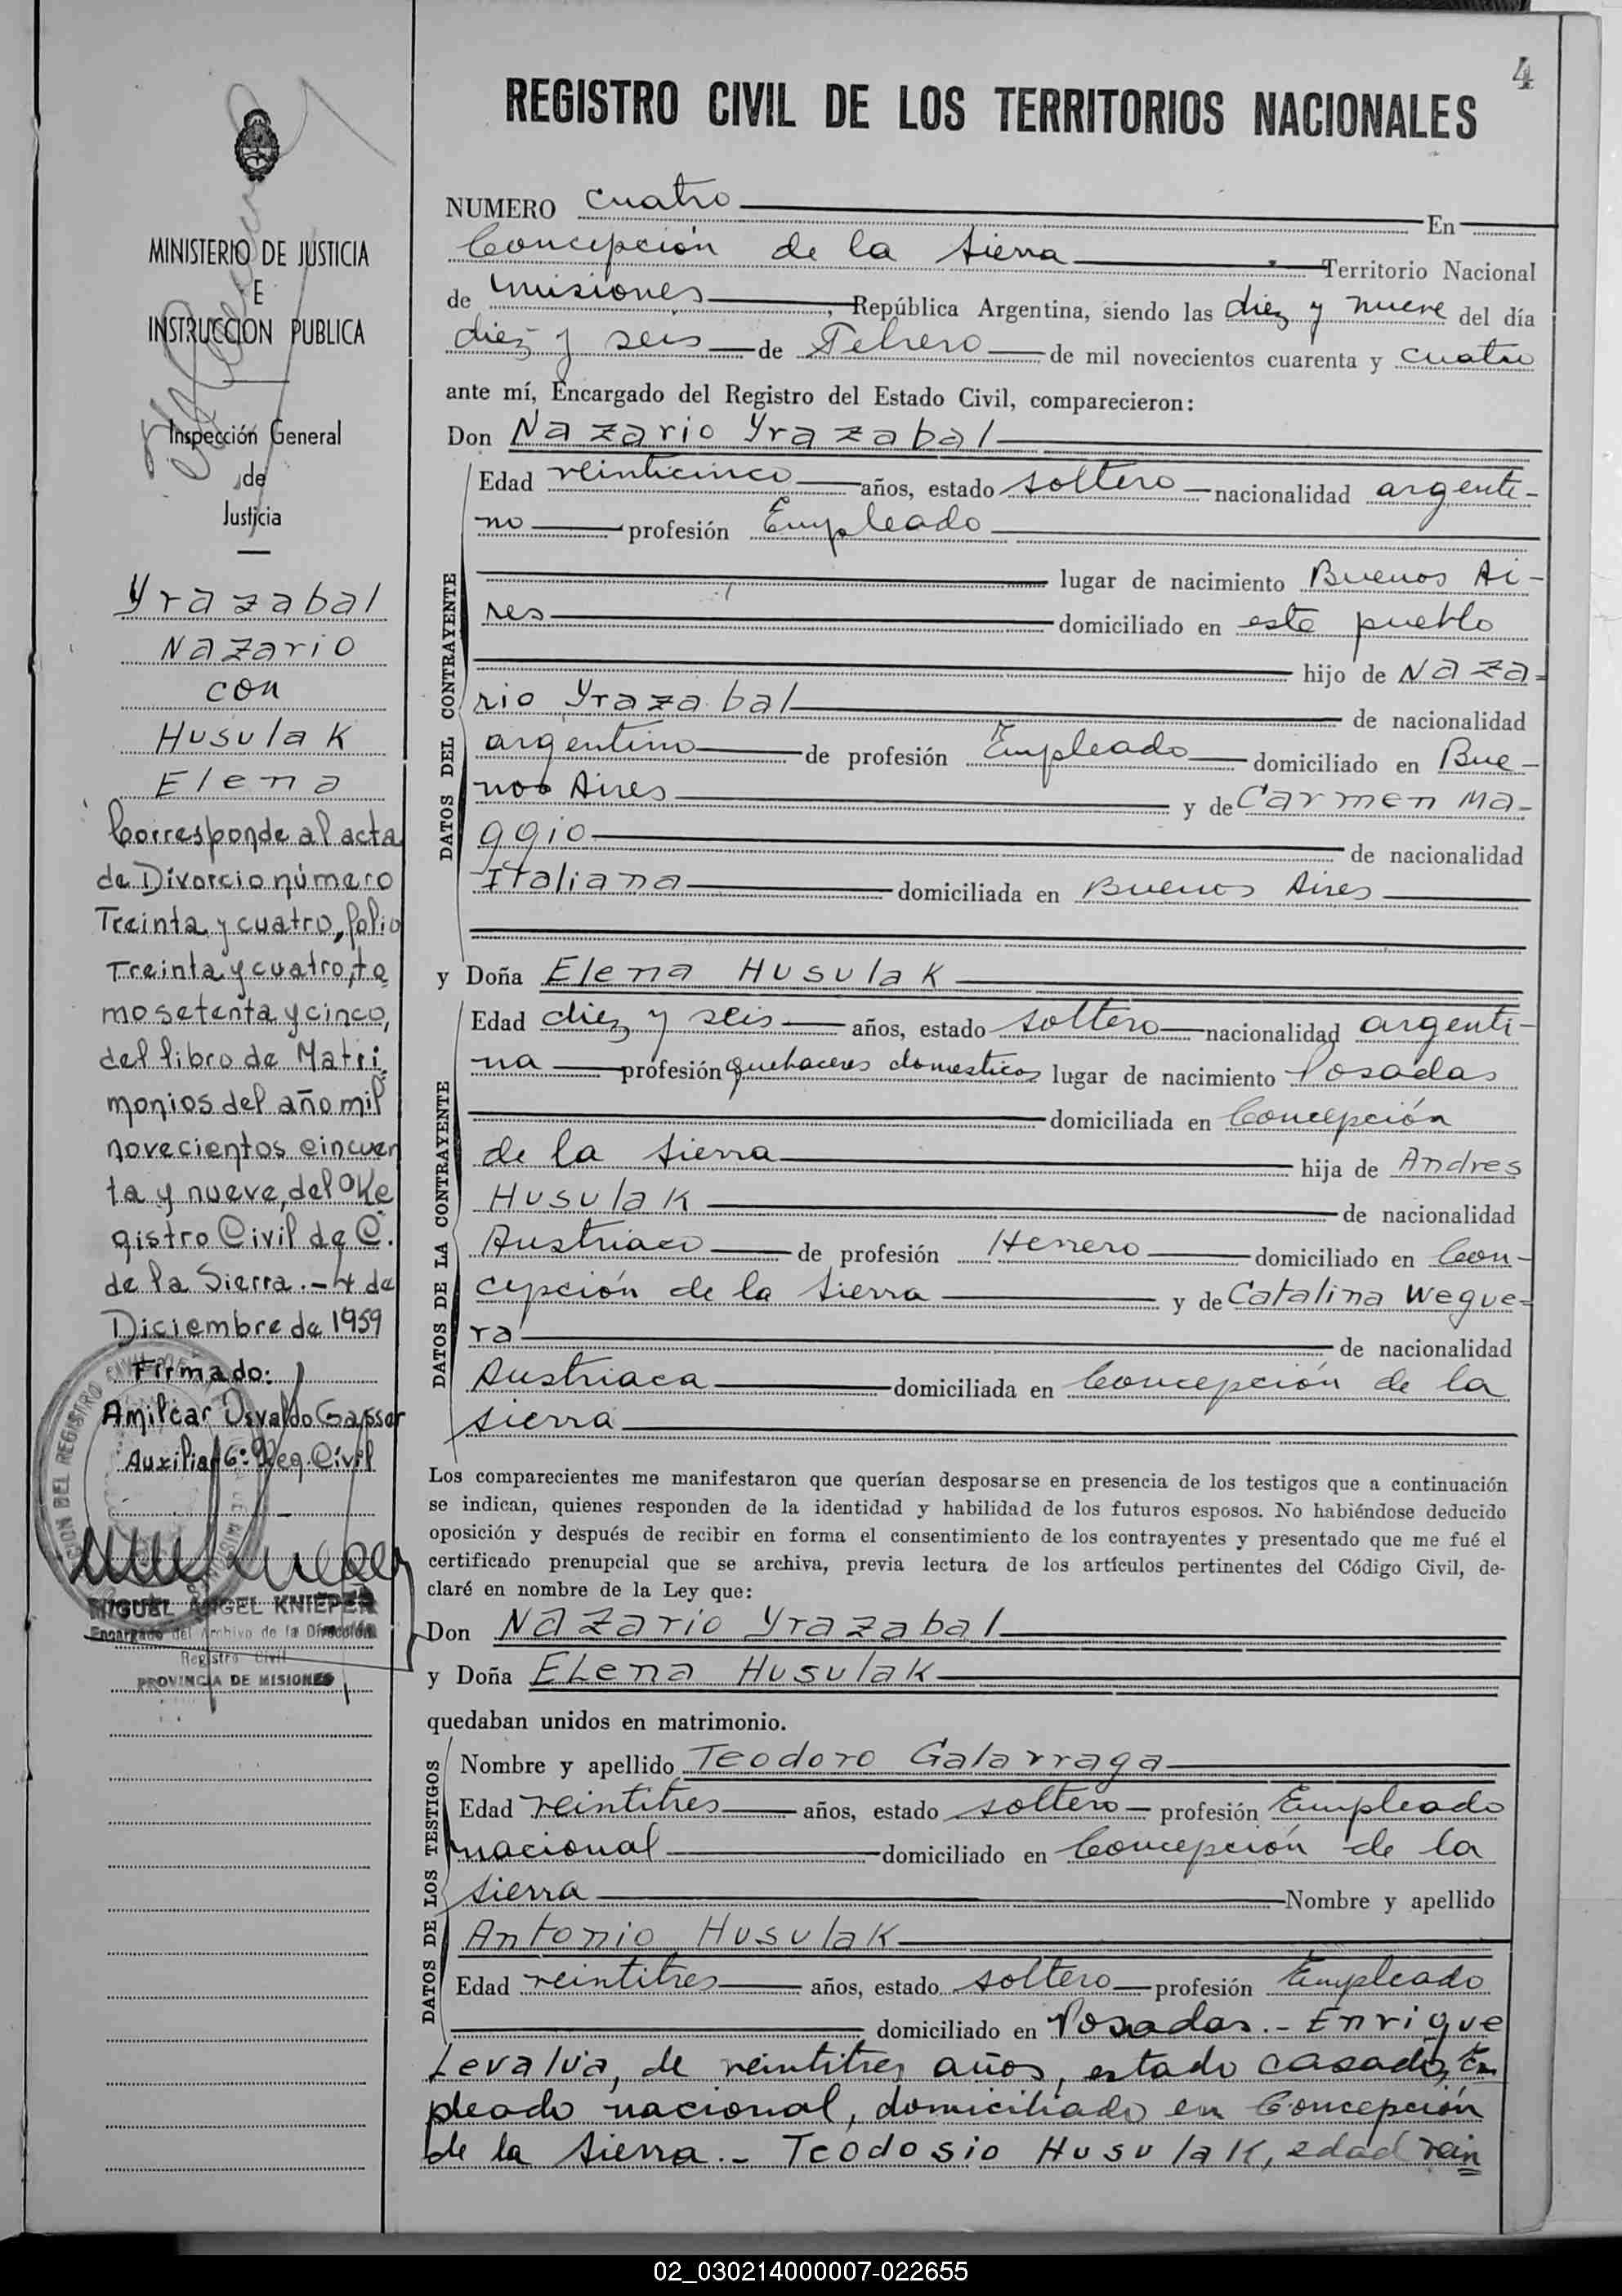 4
REGISTRO CIVIL DE LOS TERRITORIOS NACIONALES
MINISTERIO DE JUSTICIA
E
INSTRUCCION PUBLICA
Inspección General
de
Justicia
Yrazabal
Nazario
con
Husulak
Elena
Corresponde al acta
de Divorcio número
Treinta y cuatro, folio
Treinta y cuatro, to
mo setenta y cinco,
del libro de Matri
monios del año mil
novecientos cincuen
ta y nueve, del Re
gistro Civil de C.
de la Sierra.- 4 de
Diciembre de 1959
Firmado:
Amilcar Osvaldo Gasser
Auxiliar 6º Reg. Civil
MIGUEL ANGEL KNIEPER
Encargado del Archivo de la Dirección
Registro Civil
PROVINCIA DE MISIONES
NUMERO cuatro En
Concepción de la Sierra Territorio Nacional
de Misiones, República Argentina, siendo las diez y nueve del día
diez y seis de Febrero de mil novecientos cuarenta y cuatro
ante mí, Encargado del Registro del Estado Civil, comparecieron:
Don Nazario Yrazabal
DATOS DEL CONTRAYENTE
Edad veinticinco años, estado soltero nacionalidad argenti-
no profesión Empleado
lugar de nacimiento Buenos Ai-
res domiciliado en este pueblo
hijo de Naza-
rio Yrazabal de nacionalidad
argentino de profesión Empleado domiciliado en Bue-
nos Aires y de Carmen Ma-
ggio de nacionalidad
Italiana domiciliada en Buenos Aires
y Doña Elena Husulak
DATOS DE LA CONTRAYENTE
Edad diez y seis años, estado soltera nacionalidad argenti-
na profesión quehaceres domesticos lugar de nacimiento Posadas
domiciliada en Concepción
de la Sierra hija de Andres
Husulak de nacionalidad
Austriaco de profesión Herrero domiciliado en Con-
cepción de la Sierra y de Catalina Wegue-
ra de nacionalidad
Austriaca domiciliada en Concepción de la
Sierra
Los comparecientes me manifestaron que querían desposarse en presencia de los testigos que a continuación
se indican, quienes responden de la identidad y habilidad de los futuros esposos. No habiéndose deducido
oposición y después de recibir en forma el consentimiento de los contrayentes y presentado que me fué el
certificado prenupcial que se archiva, previa lectura de los artículos pertinentes del Código Civil, de-
claré en nombre de la Ley que:
Don Nazario Yrazabal
y Doña Elena Husulak
quedaban unidos en matrimonio.
DATOS DE LOS TESTIGOS
Nombre y apellido Teodoro Galarraga
Edad veintitres años, estado soltero profesión Empleado
nacional domiciliado en Concepción de la
Sierra Nombre y apellido
Antonio Husulak
Edad veintitres años, estado soltero profesión Empleado
domiciliado en Posadas.- Enrique
Levalva, de veintitres años, estado casado, Em
pleado nacional, domiciliado en Concepción
de la Sierra.- Teodosio Husulak, edad vein
02_030214000007-022655